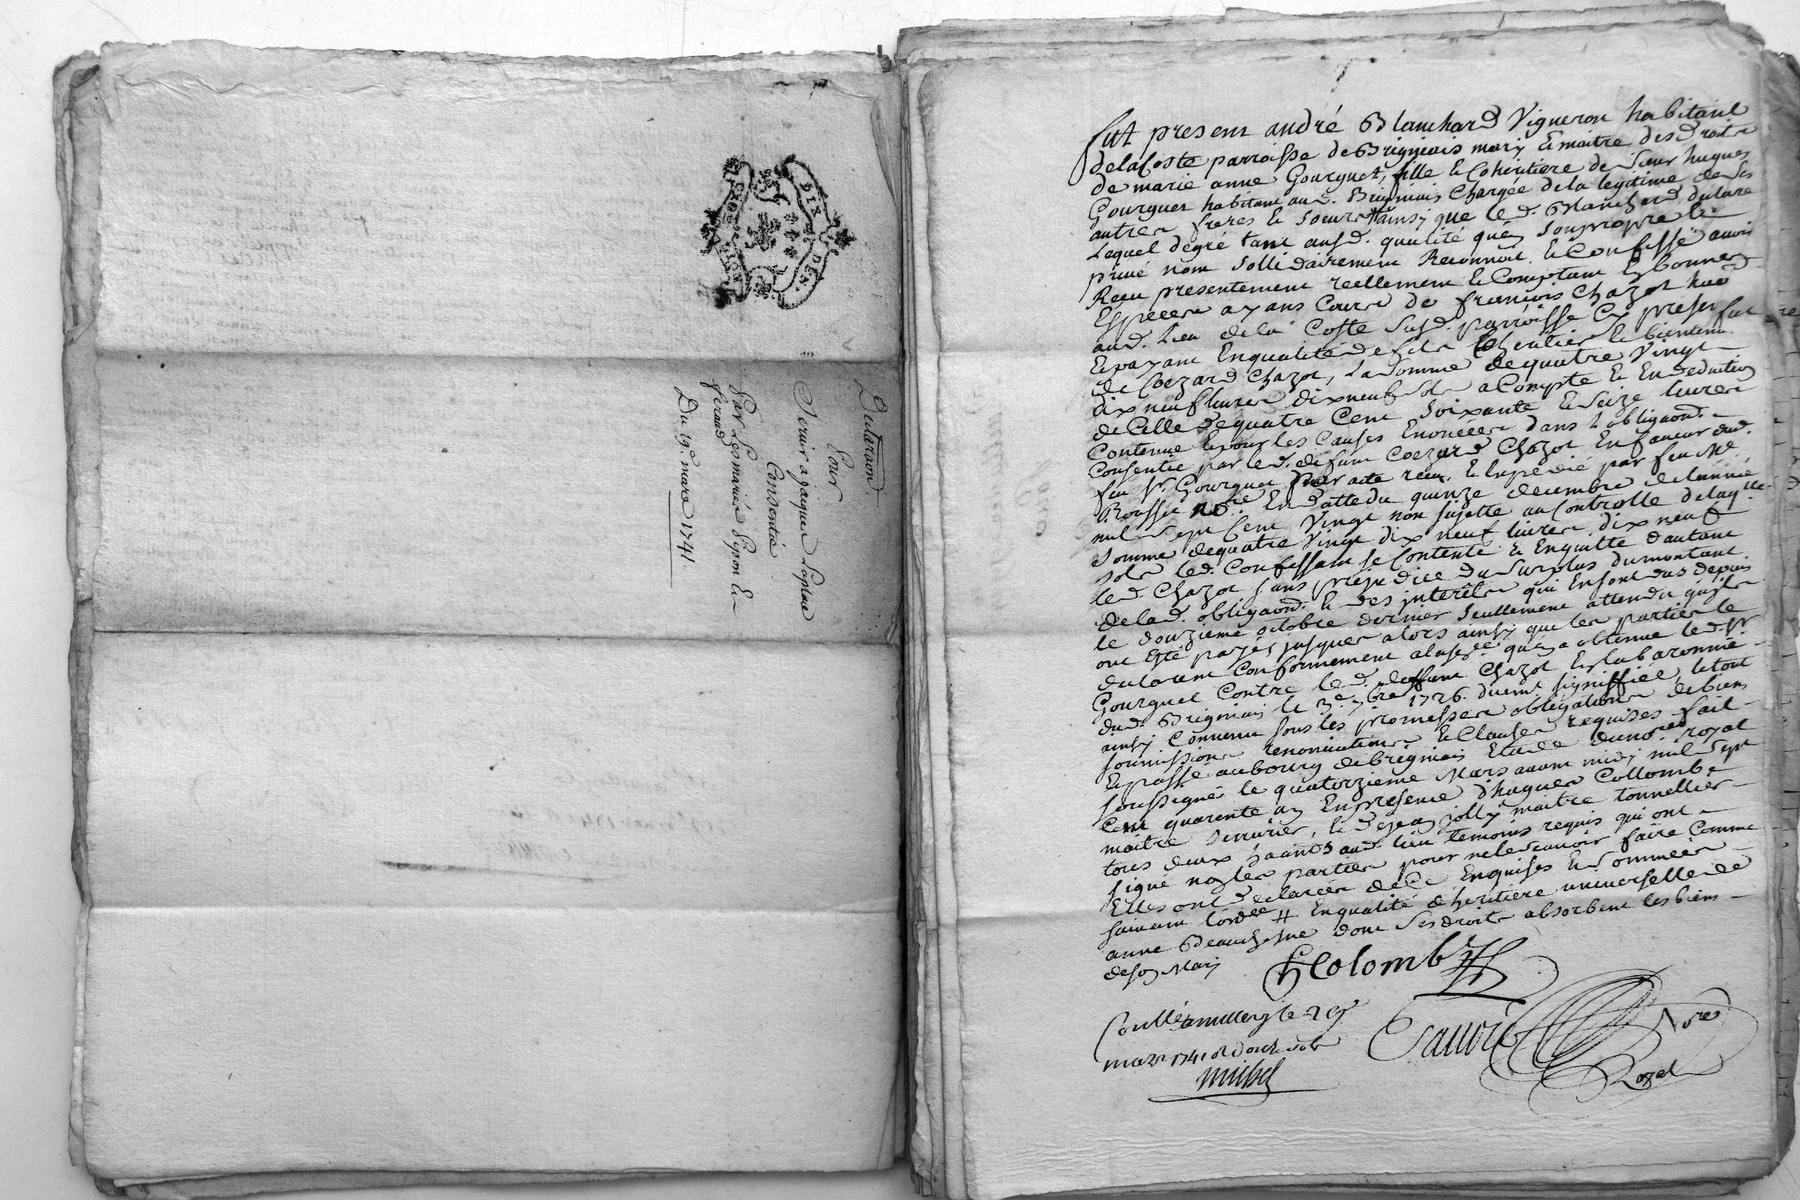 DIX DEN.
Declaraon
Pour
Servir a jacques Laplace
Condentia
Par Les mariés Pyron Et
feraud
Du 19e. mars 1741
fut present andré Blanchard Vigneron habitant
delacoste parroisse de Brignais mary Et maitre des droits
de marie anne Gourguet, fille Et Coheritiere de sieur hugues
Gourguet habitant aud. Brignais Chargée de la legitime de ses
autres freres Et soeurs # ainsy que led. Blanchard declare
Lequel degré tant ausd. qualité quen son propre Et
privé nom sollidairement Reconnoit Et Confesse avoir
Receu presentement reellement Et Comptant En bonnes
Especes ayans Cours de françois Chazot
aud. Lieu dela Coste susd. parroisse Cy present
Et payant En qualité de fils heritier Et bientenu
de Coezard Chazot, La somme de quatre Vingt
dix neuf livres dix neuf sols a Compte Et En deduction
de Celle de quatre Cent soixante Et seize livres
Contenue Et pour les Causes Enoncées dans l'obligaon
Consentie par led. defunt Coezard Chazot En faveur dud.
feu sr. Gourguet par acte receu Et Expedié par feu Me
Roussie nore En datte du quinze decembre de lannée
mil sept Cent Vingt non sujette au Controlle delaqlle
somme de quatre Vingt dix neuf livres dix neuf
sols led. Confessant se Contente Et En quitte dautant
led. Chazot sans prejudice du surplus du montant
de lad. obligaon Et des interêts qui En sont dus depuis
le douzieme octobre dernier seullement attendu quils
ont Esté payés jusques alors ainsy que les parties le
declarent Conformement a la quy a obtenue led. sr
Gourguet Contre led. deffunt Chazot En la baronnie
dud. Brignais le 3e 7bre 1726. duemt signiffiée, le tout
ainsy Convenu sous les promesses obligations de biens
soumissions renonciations Et Clauses requises fait
Et passé au bourg de Brignais Etude du nore royal
soussigné le quatorzieme Mars avant midy mil sept
Cent quarente un En presence d'hugues Collomb
maitre serrurier, Et de jean jolly maitre tonnellier
tous deux haants aud. lieu temoins requis qui ont
signé non les parties pour ne le scavoir faire Comme
Elles ont declarées de Ce Enquises Et sommées
suivant lordce # En qualité d'heritiere universelle de
anne Beauchesne dont les droits absorbent les biens
de son Mary
H Colomb
Conllé a millery le 19
mars 1741 R douze sols
michel
Sauvé Nore
Royal